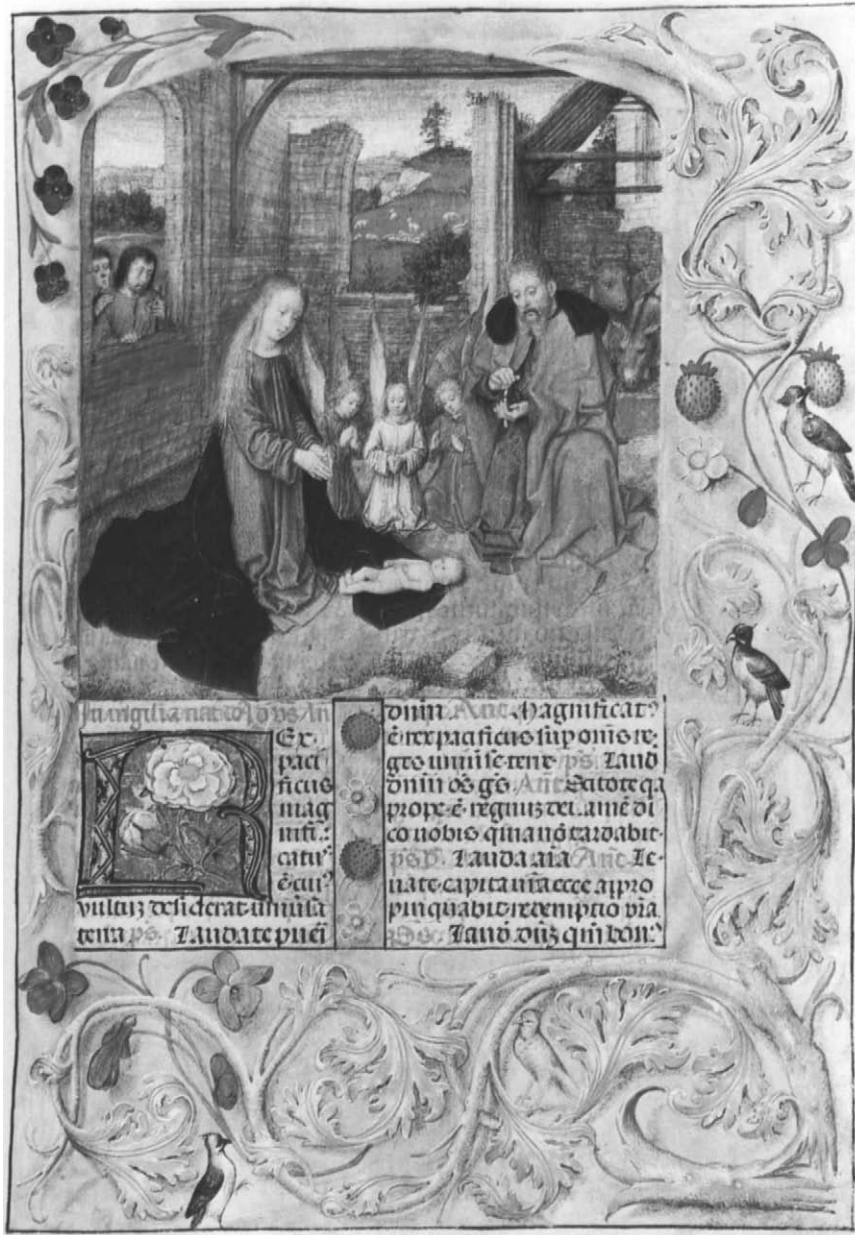 In vigilia nat
Ex
paci
ficus
mag
nifi:
catus
ē cui⁹
vultuz desiderat univsa
terra ps. Laudate pueri
dnm Ane. Magnificat⁹
ē rex pacificus sup omēs re:
ges univse terre ps. Laud
dnm oēs gēs Ane Scitote qa
prope ē regnuz dei amē di
co vobis quia nō tardabit.
ps. Lauda aīa Ane Le:
vate capita vrā ecce appro
pinquabit redemptio vrā
Ps. Laud dnz qm bon⁹